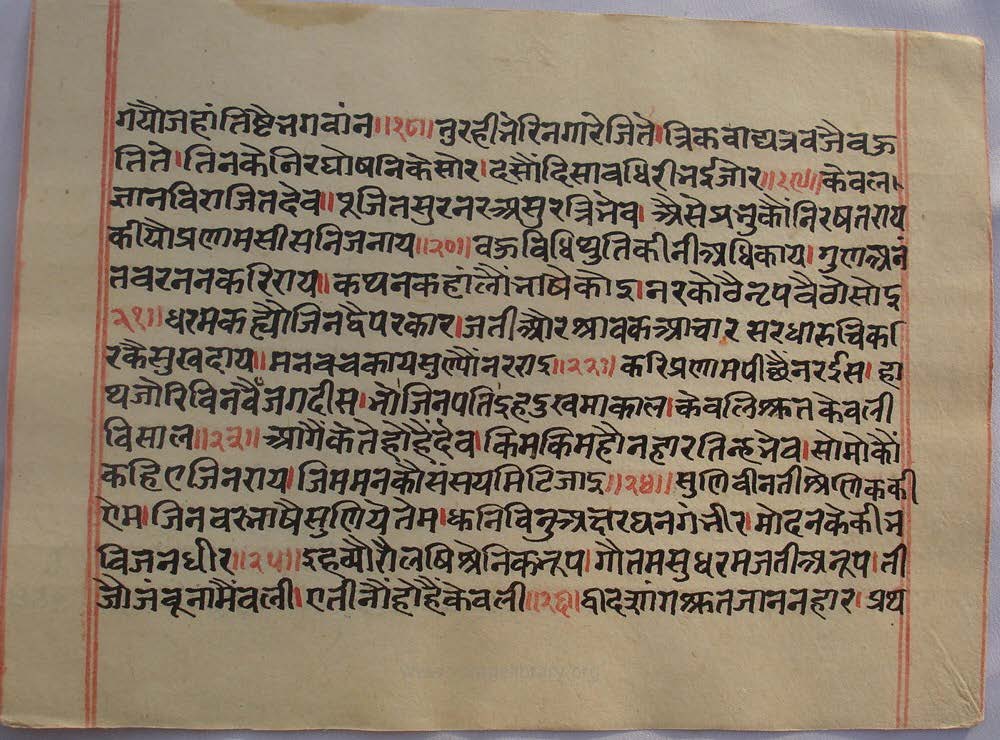 गयौजहांतिष्टैभगवांन॥१८॥नुरहीभेरिनगारेजिते।त्रिकवाद्यत्रवजैवऊ
तिते।तिनकेनिरघोषनिकेसोर।दसौंदिसावधिरीभईजोर॥१९॥केवल।
ज्ञानविराजितदेव॥पूजितसुरनरअसुरत्रिभेव।अैसेप्रभुकौंनिरषतराय
कीयौप्रणामसीसनिजनाय॥२०॥वऊविधिथुतिकीनीअधिकाय।गुणअनं
तवरननकरिराय॥कथनकहांलौंभाषैकोइ।नरकोवैनृपवैवोसोइ
२१॥धरमकह्यौजिनद्वैपरकार।जतीऔरश्रावकआचार सरधारुचिकरि
रकैसुखदाय॥मनवचकायसुण्यौनरराइ॥२२॥करिप्रणामपीछैनरईस।हा
थजोरिविनवैजगदीस।भोजिनपतिइहदुखमाकाल।केवलिश्रुतकेवली
विसाल॥२३॥आगैंकेतेहोहैंदेव।किमकिमहोनहारतिन्हभेव।सोमोकौं
कहिएजिनराय।जिममनकौसंसयमिटिजाइ॥२४॥सुणिवीनतीश्रेणिककी
एम।जिनवरभाषैसुणियेतेम।ध्वनिविनुअक्षरघनगंभीर।मोदनकेकीभ
विजनधीर॥२५॥इहव्यौरौलषिश्रेनिकनूप।गौतमसुधरमजतीअनूप।ती
जोजंबूनामैंवली।एतीनौंहोहैंकेवली॥२६॥द्वादशांगश्रुतजाननहार।प्रथ